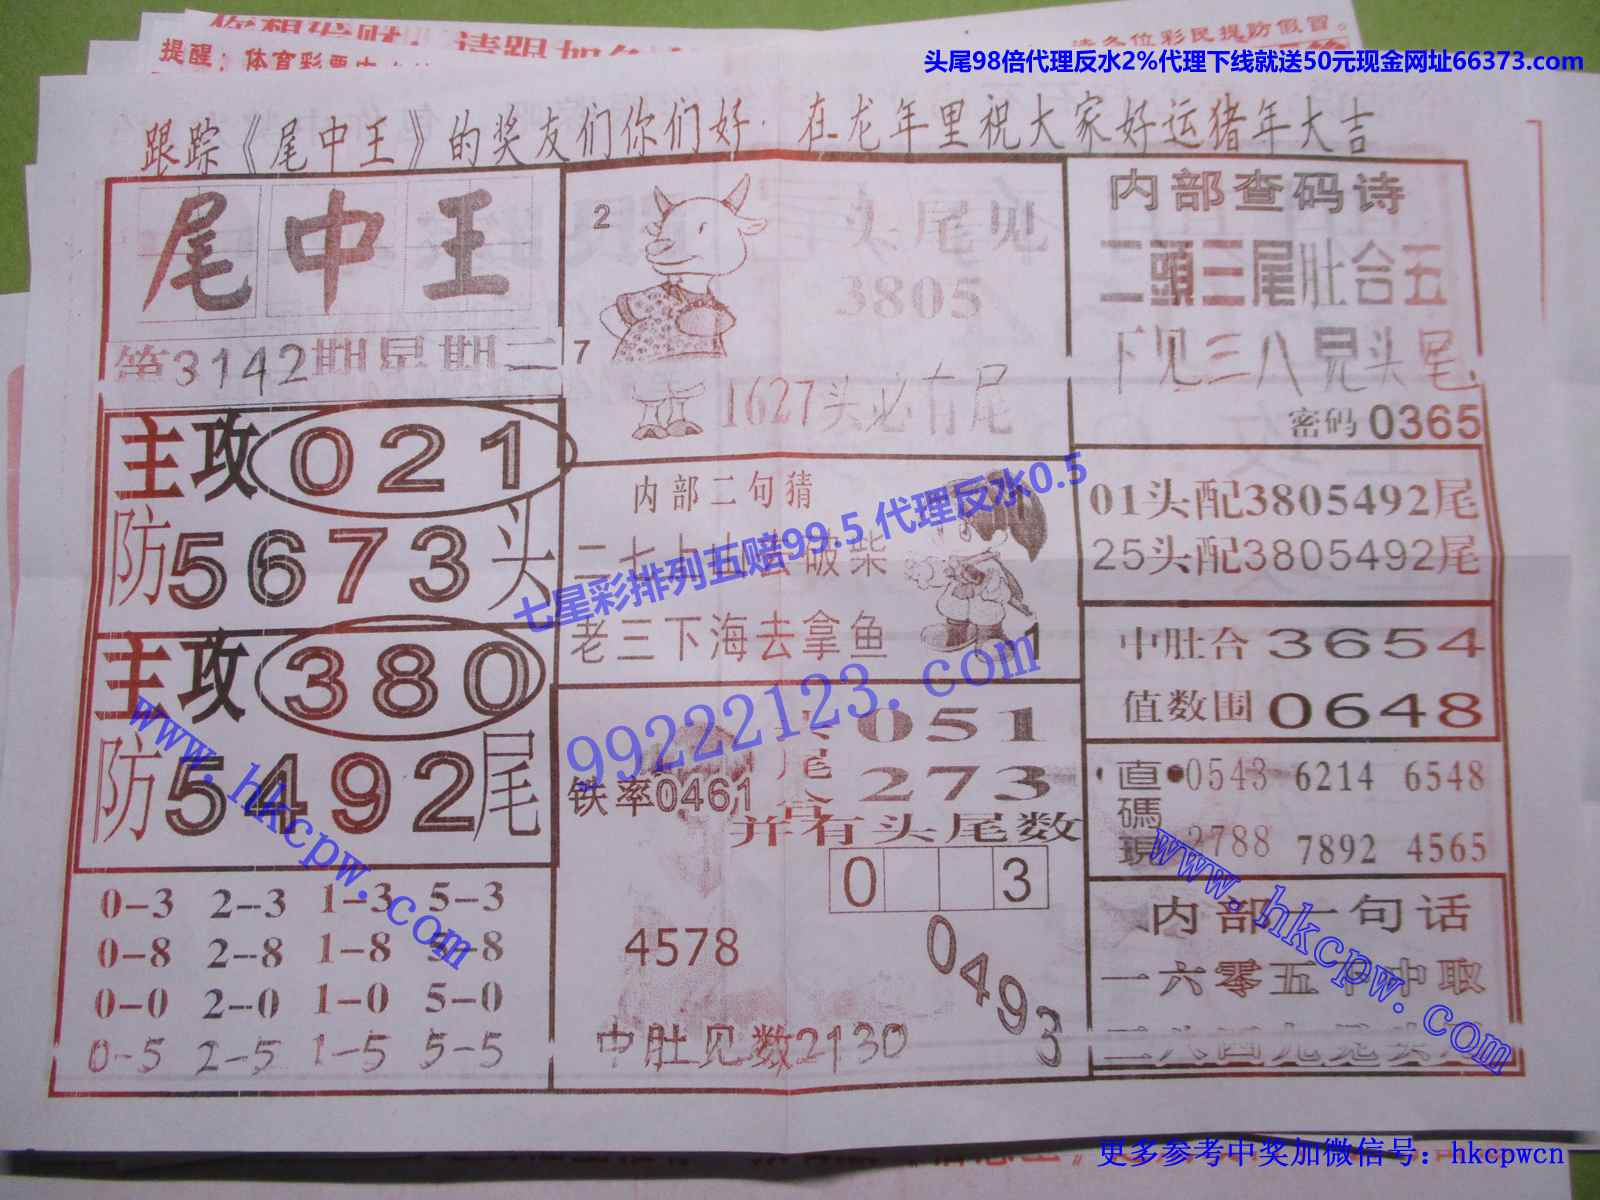 提醒：体育彩票
请各位彩民提防假冒。
头尾98倍代理反水2%代理下线就送50元现金网址66373.com
跟踪《尾中王》的奖友们你们好·在龙年里祝大家好运猪年大吉
尾中王
第3142期星期二
主攻021
防5673头
主攻380
防5492尾
0-3 2-3 1-3 5-3
0-8 2-8 1-8 5-8
0-0 2-0 1-0 5-0
0-5 2-5 1-5 5-5
2
7
头尾见
3805
1627头必有尾
内部二句猜
破柴
老三下海去拿鱼
1
七星彩排列五赔99.5 代理反水0.5
99222123.com
051
尾 273
铁率0461
并有头尾数
0 3
4578
0493
中肚见数2130
内部查码诗
二頭三尾肚合五
下见三八見头尾.
密码0365
01头配3805492尾
25头配3805492尾
中肚合3654
值数围0648
直碼現
0543 6214 6548
2788 7892 4565
内部一句话
一六零五中中取
www.hkcpw.com
www.hkcpw.com
更多参考中奖加微信号：hkcpwcn